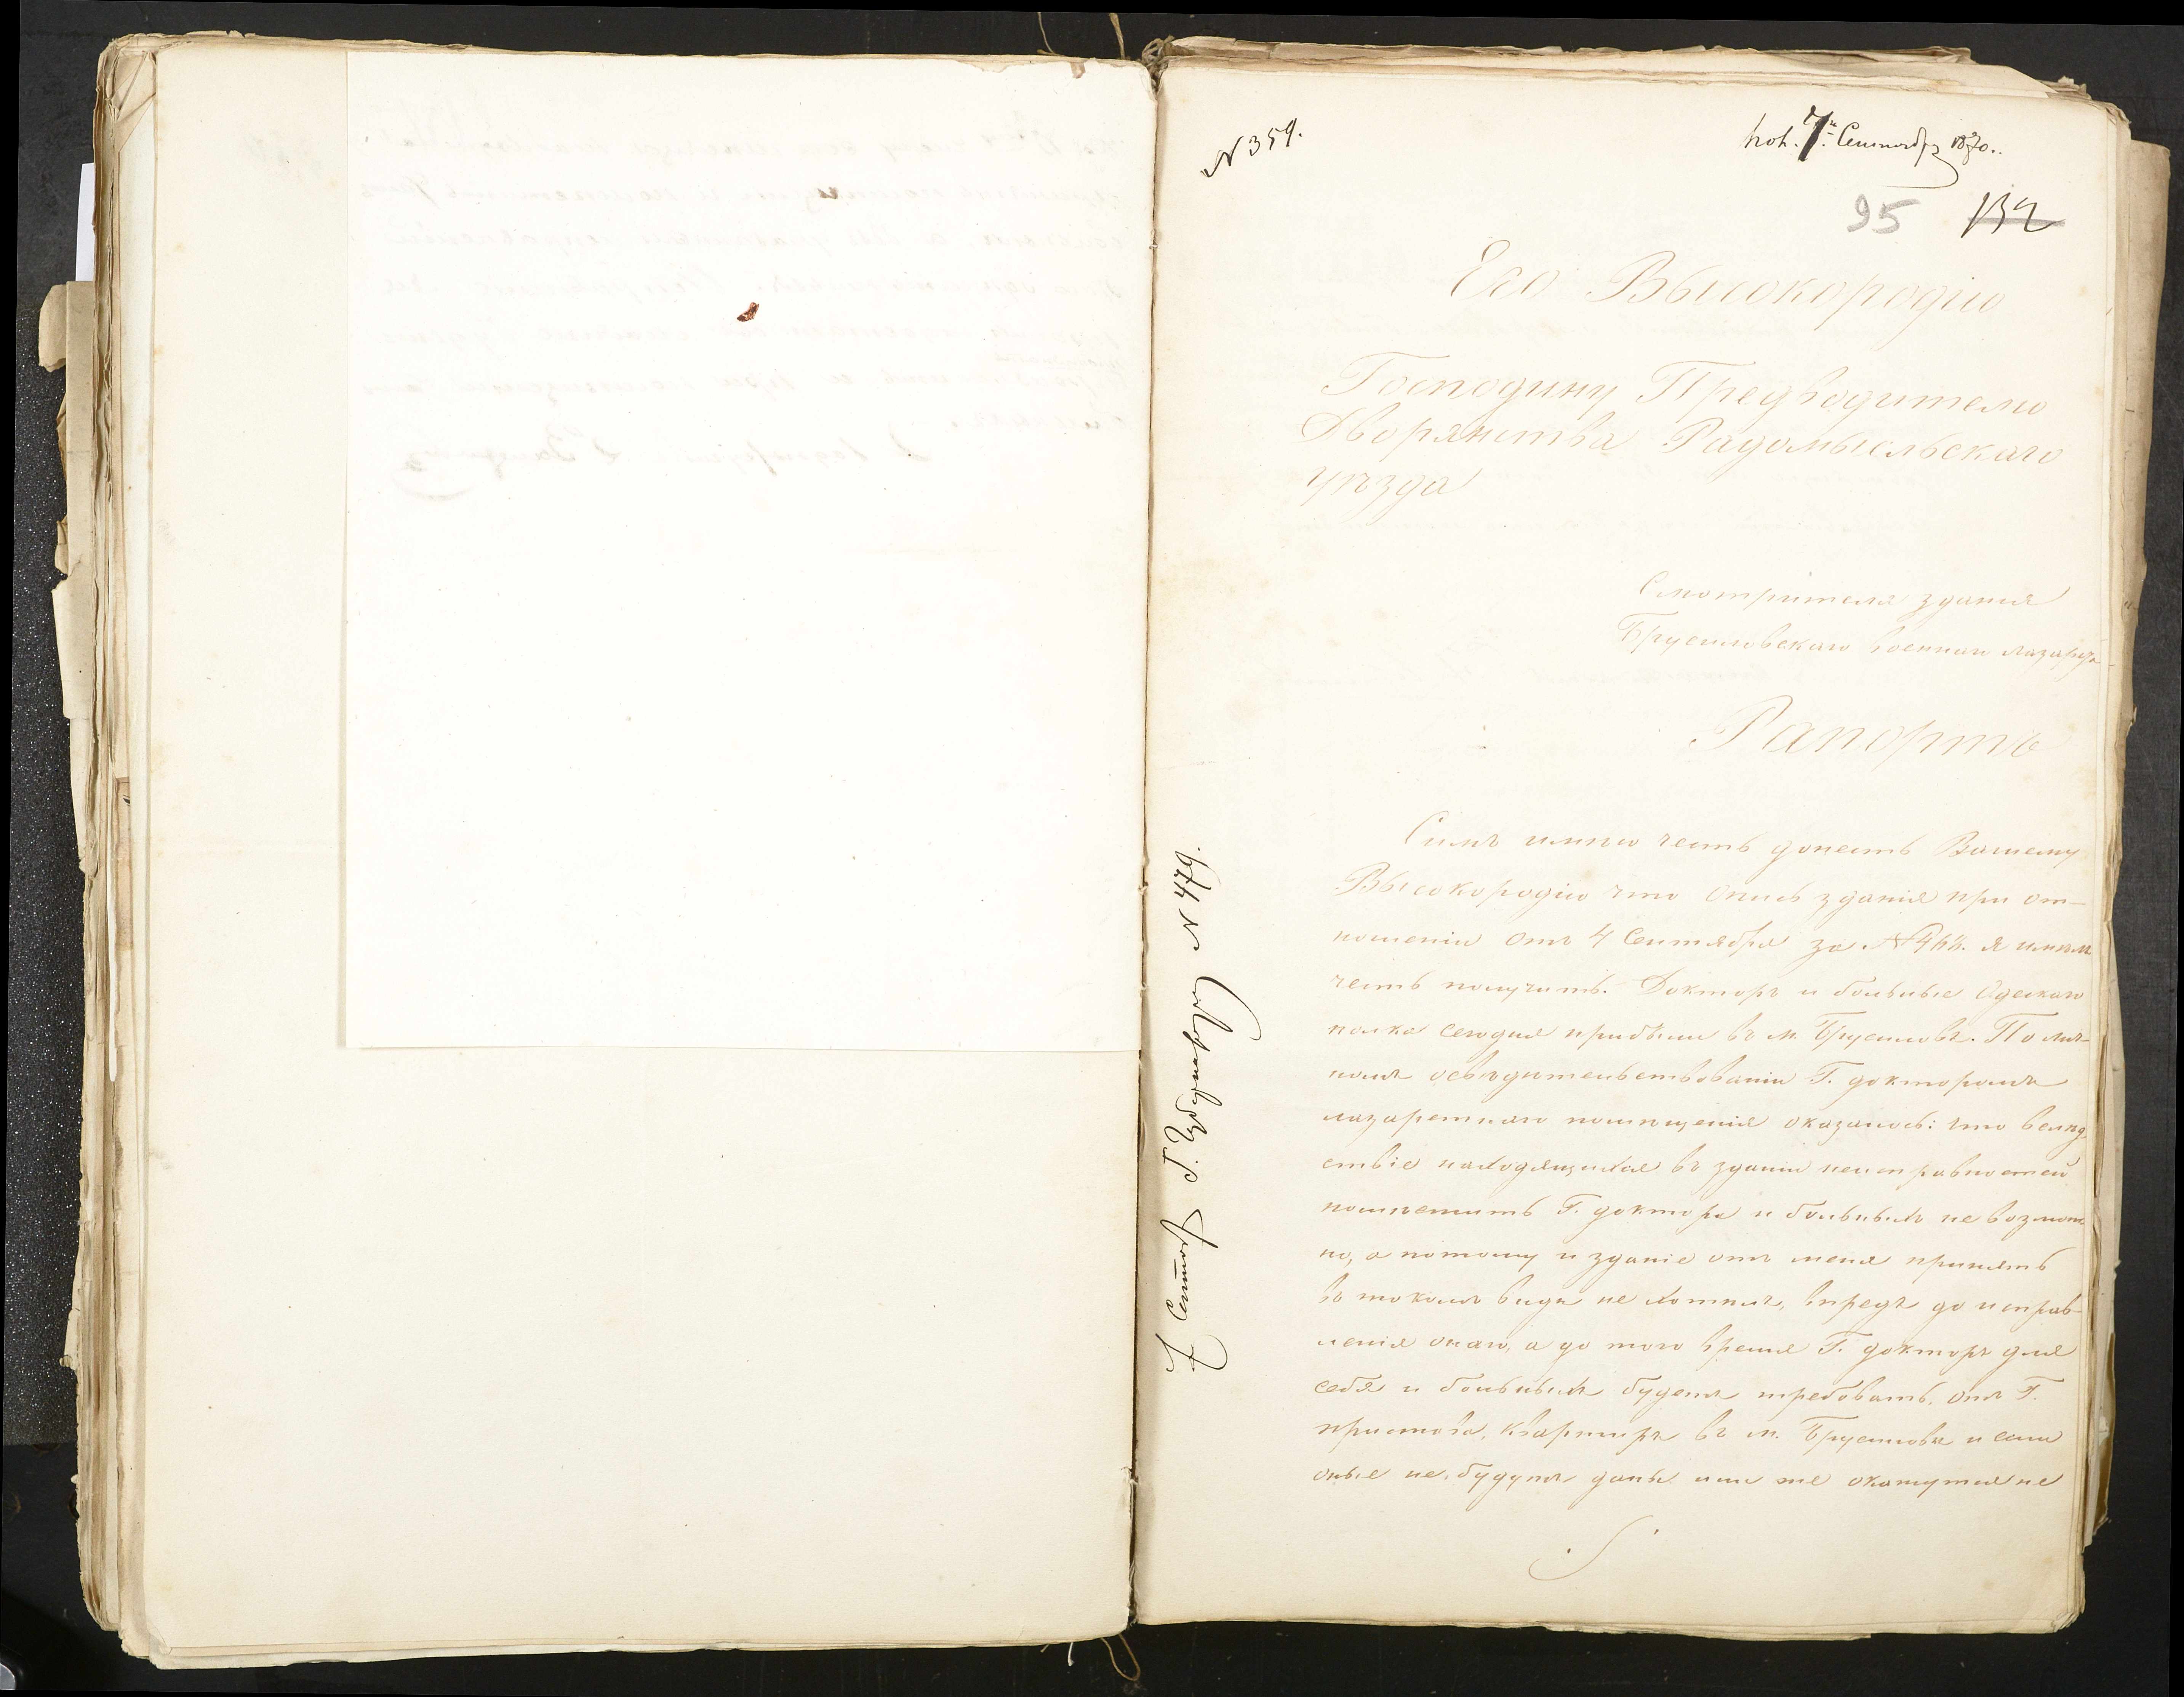 N 359.
пол. 7. Сентября 1870..
95 132
Его Высокородію
Господину Предводителю
Дворянства Радомысльскаго
уѣзда
Смотрителя зданія
Брусиловскаго военнаго лазарета
Рапортъ
Симъ имѣю честь донесть Вашему
Высокородію что опись зданія при от-
ношеніи отъ 4 Сентября за № я имѣлъ
честь получить. Докторъ и больные Одескаго
полка сегодня прибыли въ м. Брусиловъ. По лич-
номъ освѣдительствованіи Г. докторомъ
лазаретнаго помѣщенія оказалось: что вслѣд-
ствіе находящихся въ зданіи неисправностей
помѣстить Г. доктора и больныхъ не возмож-
но, а потому и зданіе отъ меня принять
въ такомъ видѣ не хотѣлъ, впредъ до исправ-
ленія онаго, а до того время Г. докторъ для
себя и больныхъ будетъ требовать отъ Г.
пристава, квартиръ въ м. Брусиловѣ и если
оные не будутъ даны или же окажутся не
7 Г. Губернатору N 479.